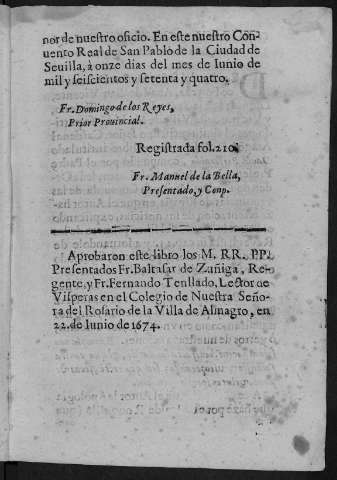 nor de nuestro oficio. En este nuestro Con-
uento Real de San Pablo de la Ciudad de
Seuilla, à onze dias del mes de Iunio de
mil y seiscientos y setenta y quatro.
Fr. Domingo de los Reyes,
Prior Prouincial.
Registrada fol. 210.
Fr. Manuel de la Bella,
Presentado, y Conp.
Aprobaron este libro los M. RR. PP.
Presentados Fr. Baltasar de Zuñiga, Re-
gente, y Fr. Fernando Tenllado, Lector de
Visperas en el Colegio de Nuestra Seño-
ra del Rosario de la Villa de Almagro, en
22. de Iunio de 1674.